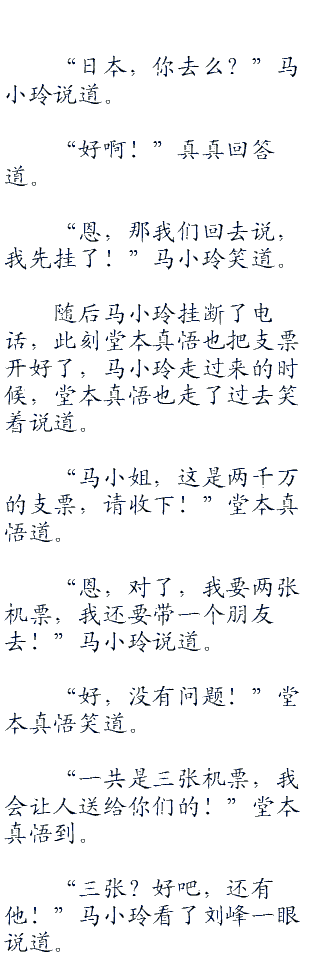 “日本，你去么？”马
小玲说道。
“好啊！”真真回答
道。
“恩，那我们回去说，
我先挂了！”马小玲笑道。
随后马小玲挂断了电
话，此刻堂本真悟也把支票
开好了，马小玲走过来的时
候，堂本真悟也走了过去笑
着说道。
“马小姐，这是两千万
的支票，请收下！”堂本真
悟道。
“恩，对了，我要两张
机票，我还要带一个朋友
去！”马小玲说道。
“好，没有问题！”堂
本真悟笑道。
“一共是三张机票，我
会让人送给你们的！”堂本
真悟到。
“三张？好吧，还有
他！”马小玲看了刘峰一眼
说道。